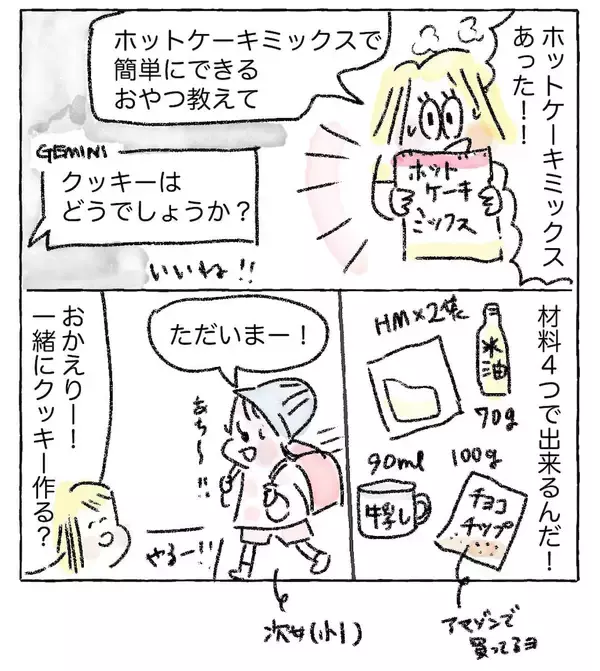 ホットケーキミックス
あった！！
ホットケーキミックスで
簡単にできる
おやつ教えて
ホット
ケーキ
ミックス
GEMINI
クッキーは
どうでしょうか？
いいね!!
材料４つで出来るんだ！
HM×2袋
米油
70g
90ml
牛乳
100g
チョコ
チップ
アマゾンで
買ってるヨ
ただいまー！
あち〜!!
次女(小1)
おかえりー！
一緒にクッキー作る？
やるー!!